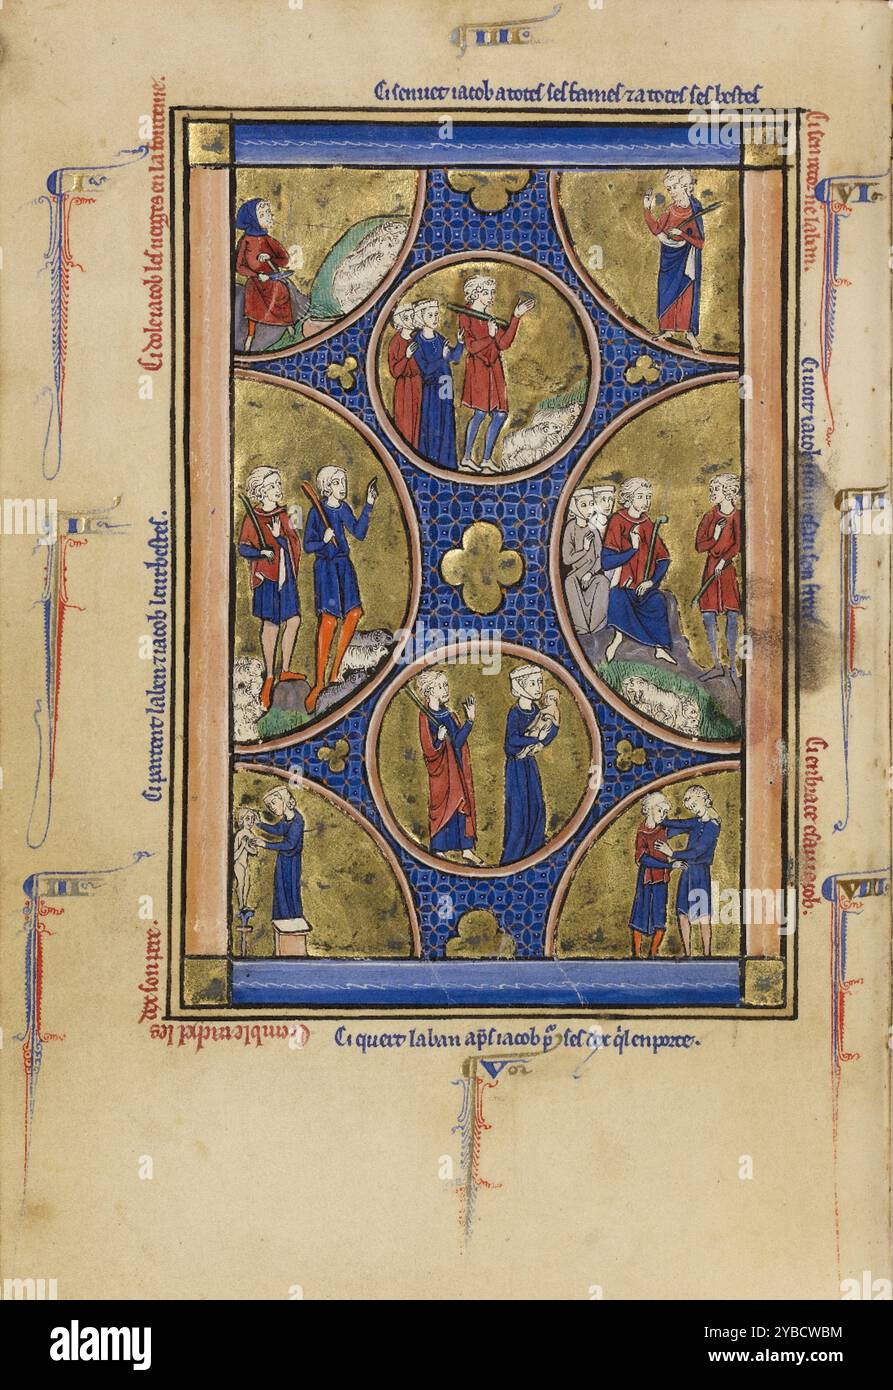 IIII
Ci senuet iacob a totes ses fames 7 a totes ses bestes
I
Ci dole iacob les uerges en la fonteine.
II
Ci partent laben 7 iacob leur bestes.
III
Ci emble rachel les
dex son pere.
V
Ci quert laban ap̄s iacob p̄ ses dex q̄l enporte.
VI
Ci sen
ne laban.
VII
Ci uoit iacob
esau son frere
VIII
Ci enbrace esau iacob.
a
alamy
Image ID: 2YBCWBM
www.alamy.com